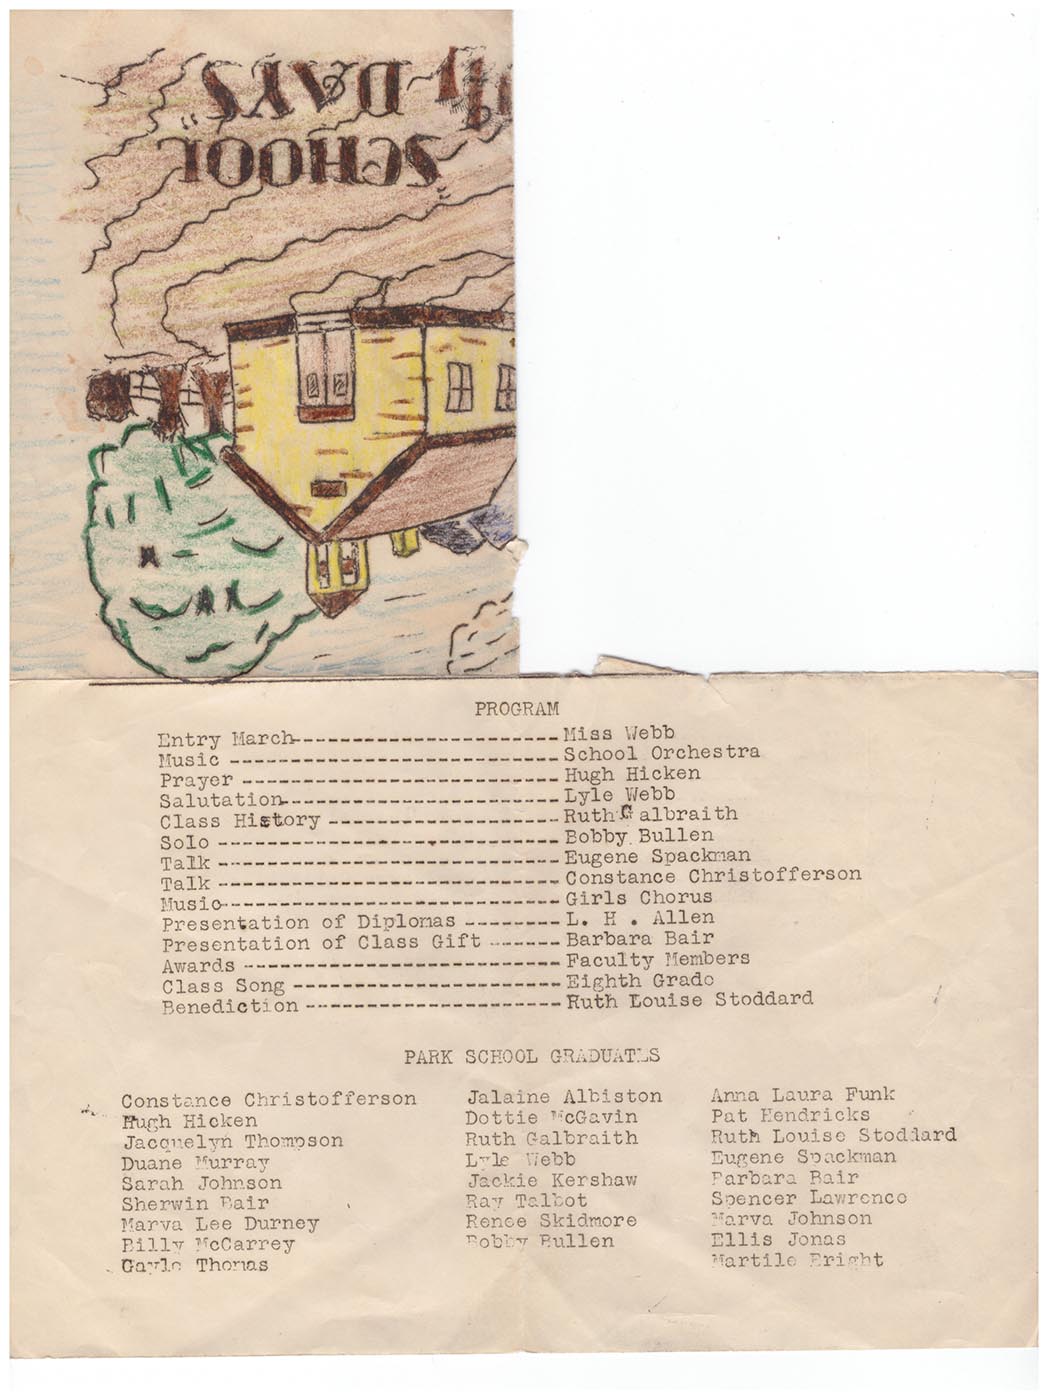 SCHOOL
DAYS
PROGRAM
Entry March----------------------Miss Webb
Music ---------------------------School Orchestra
Prayer --------------------------Hugh Hicken
Salutation-----------------------Lyle Webb
Class History -------------------Ruth Galbraith
Solo ----------------------------Bobby Bullen
Talk ----------------------------Eugene Spackman
Talk ----------------------------Constance Christofferson
Music----------------------------Girls Chorus
Presentation of Diplomas --------L. H . Allen
Presentation of Class Gift ------Barbara Bair
Awards --------------------------Faculty Members
Class Song ----------------------Eighth Grade
Benediction ---------------------Ruth Louise Stoddard
PARK SCHOOL GRADUATES
Constance Christofferson Jalaine Albiston Anna Laura Funk
Hugh Hicken Dottie McGavin Pat Hendricks
Jacquelyn Thompson Ruth Galbraith Ruth Louise Stoddard
Duane Murray Lyle Webb Eugene Spackman
Sarah Johnson Jackie Kershaw Barbara Bair
Sherwin Bair Ray Talbot Spencer Lawrence
Marva Lee Durney Renee Skidmore Marva Johnson
Billy McCarrey Bobby Bullen Ellis Jonas
Gayle Thomas Martile Bright